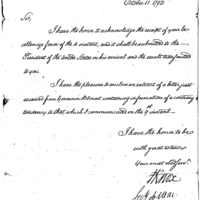 October 11. 179
Sir,
I have the honor to acknowledge the receipt of your Ex-
cellency favor of the instant, and it shall be submitted to the
President of the United States on his arrival and the result transmitted
to you.
I have the pleasure to enclose an extract of a letter just
received from Governor Blount containing information of a contrary
tendency to that which I communicated on the 9th instant.
I have the honor to be
with great esteem
Your most obed Serv
HKnox